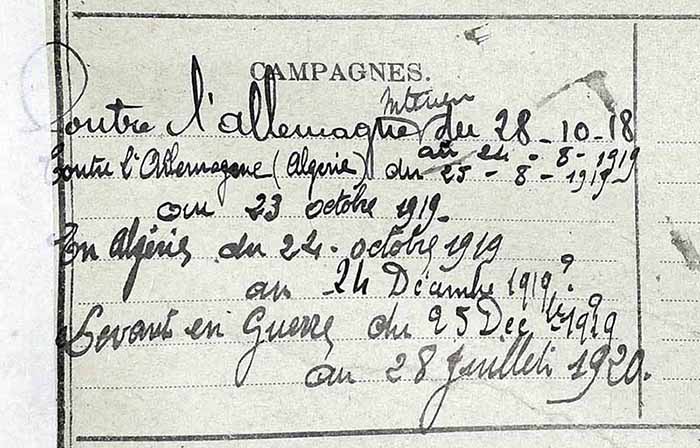 CAMPAGNES.
Intérieur
Contre l'allemagne du 28-10-18
au 24-8-1919
Contre l'Allemagne (Algérie) du 25-8-1919
au 23 octobre 1919-
En Algérie du 24-octobre 1919
au 24 Décembre 1919?
Levant en Guerre du 25 Dec bre 1919?
au 28 Juillet 1920.